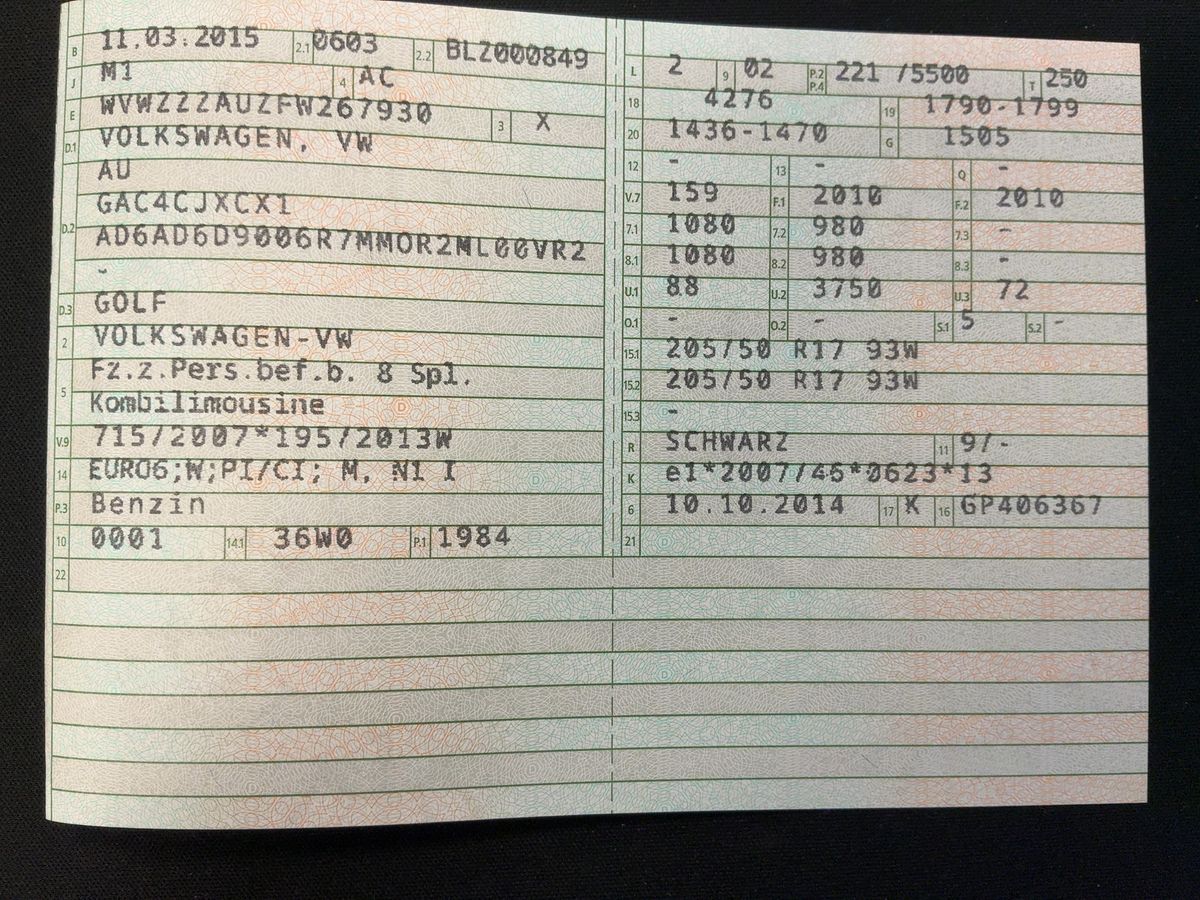 B 11.03.2015 2.1 0603 2.2 BLZ000849
J M1 4 AC
E WVWZZZAUZFW267930 3 X
D.1 VOLKSWAGEN, VW
AU
GAC4CJXCX1
D.2 AD6AD6D9006R7MMOR2ML00VR2
-
D.3 GOLF
2 VOLKSWAGEN-VW
5 Fz.z.Pers.bef.b. 8 Spl.
Kombilimousine
V.9 715/2007*195/2013W
14 EURO6;W;PI/CI; M, N1 I
P.3 Benzin
10 0001 14.1 36W0 P.1 1984
22
L 2 9 02 P.2 P.4 221 /5500 T 250
18 4276 19 1790-1799
20 1436-1470 G 1505
12 - 13 - Q -
V.7 159 F.1 2010 F.2 2010
7.1 1080 7.2 980 7.3 -
8.1 1080 8.2 980 8.3 -
U.1 88 U.2 3750 U.3 72
O.1 - O.2 - S.1 5 S.2 -
15.1 205/50 R17 93W
15.2 205/50 R17 93W
15.3 -
R SCHWARZ 11 9/-
K e1*2007/46*0623*13
6 10.10.2014 17 K 16 GP406367
21